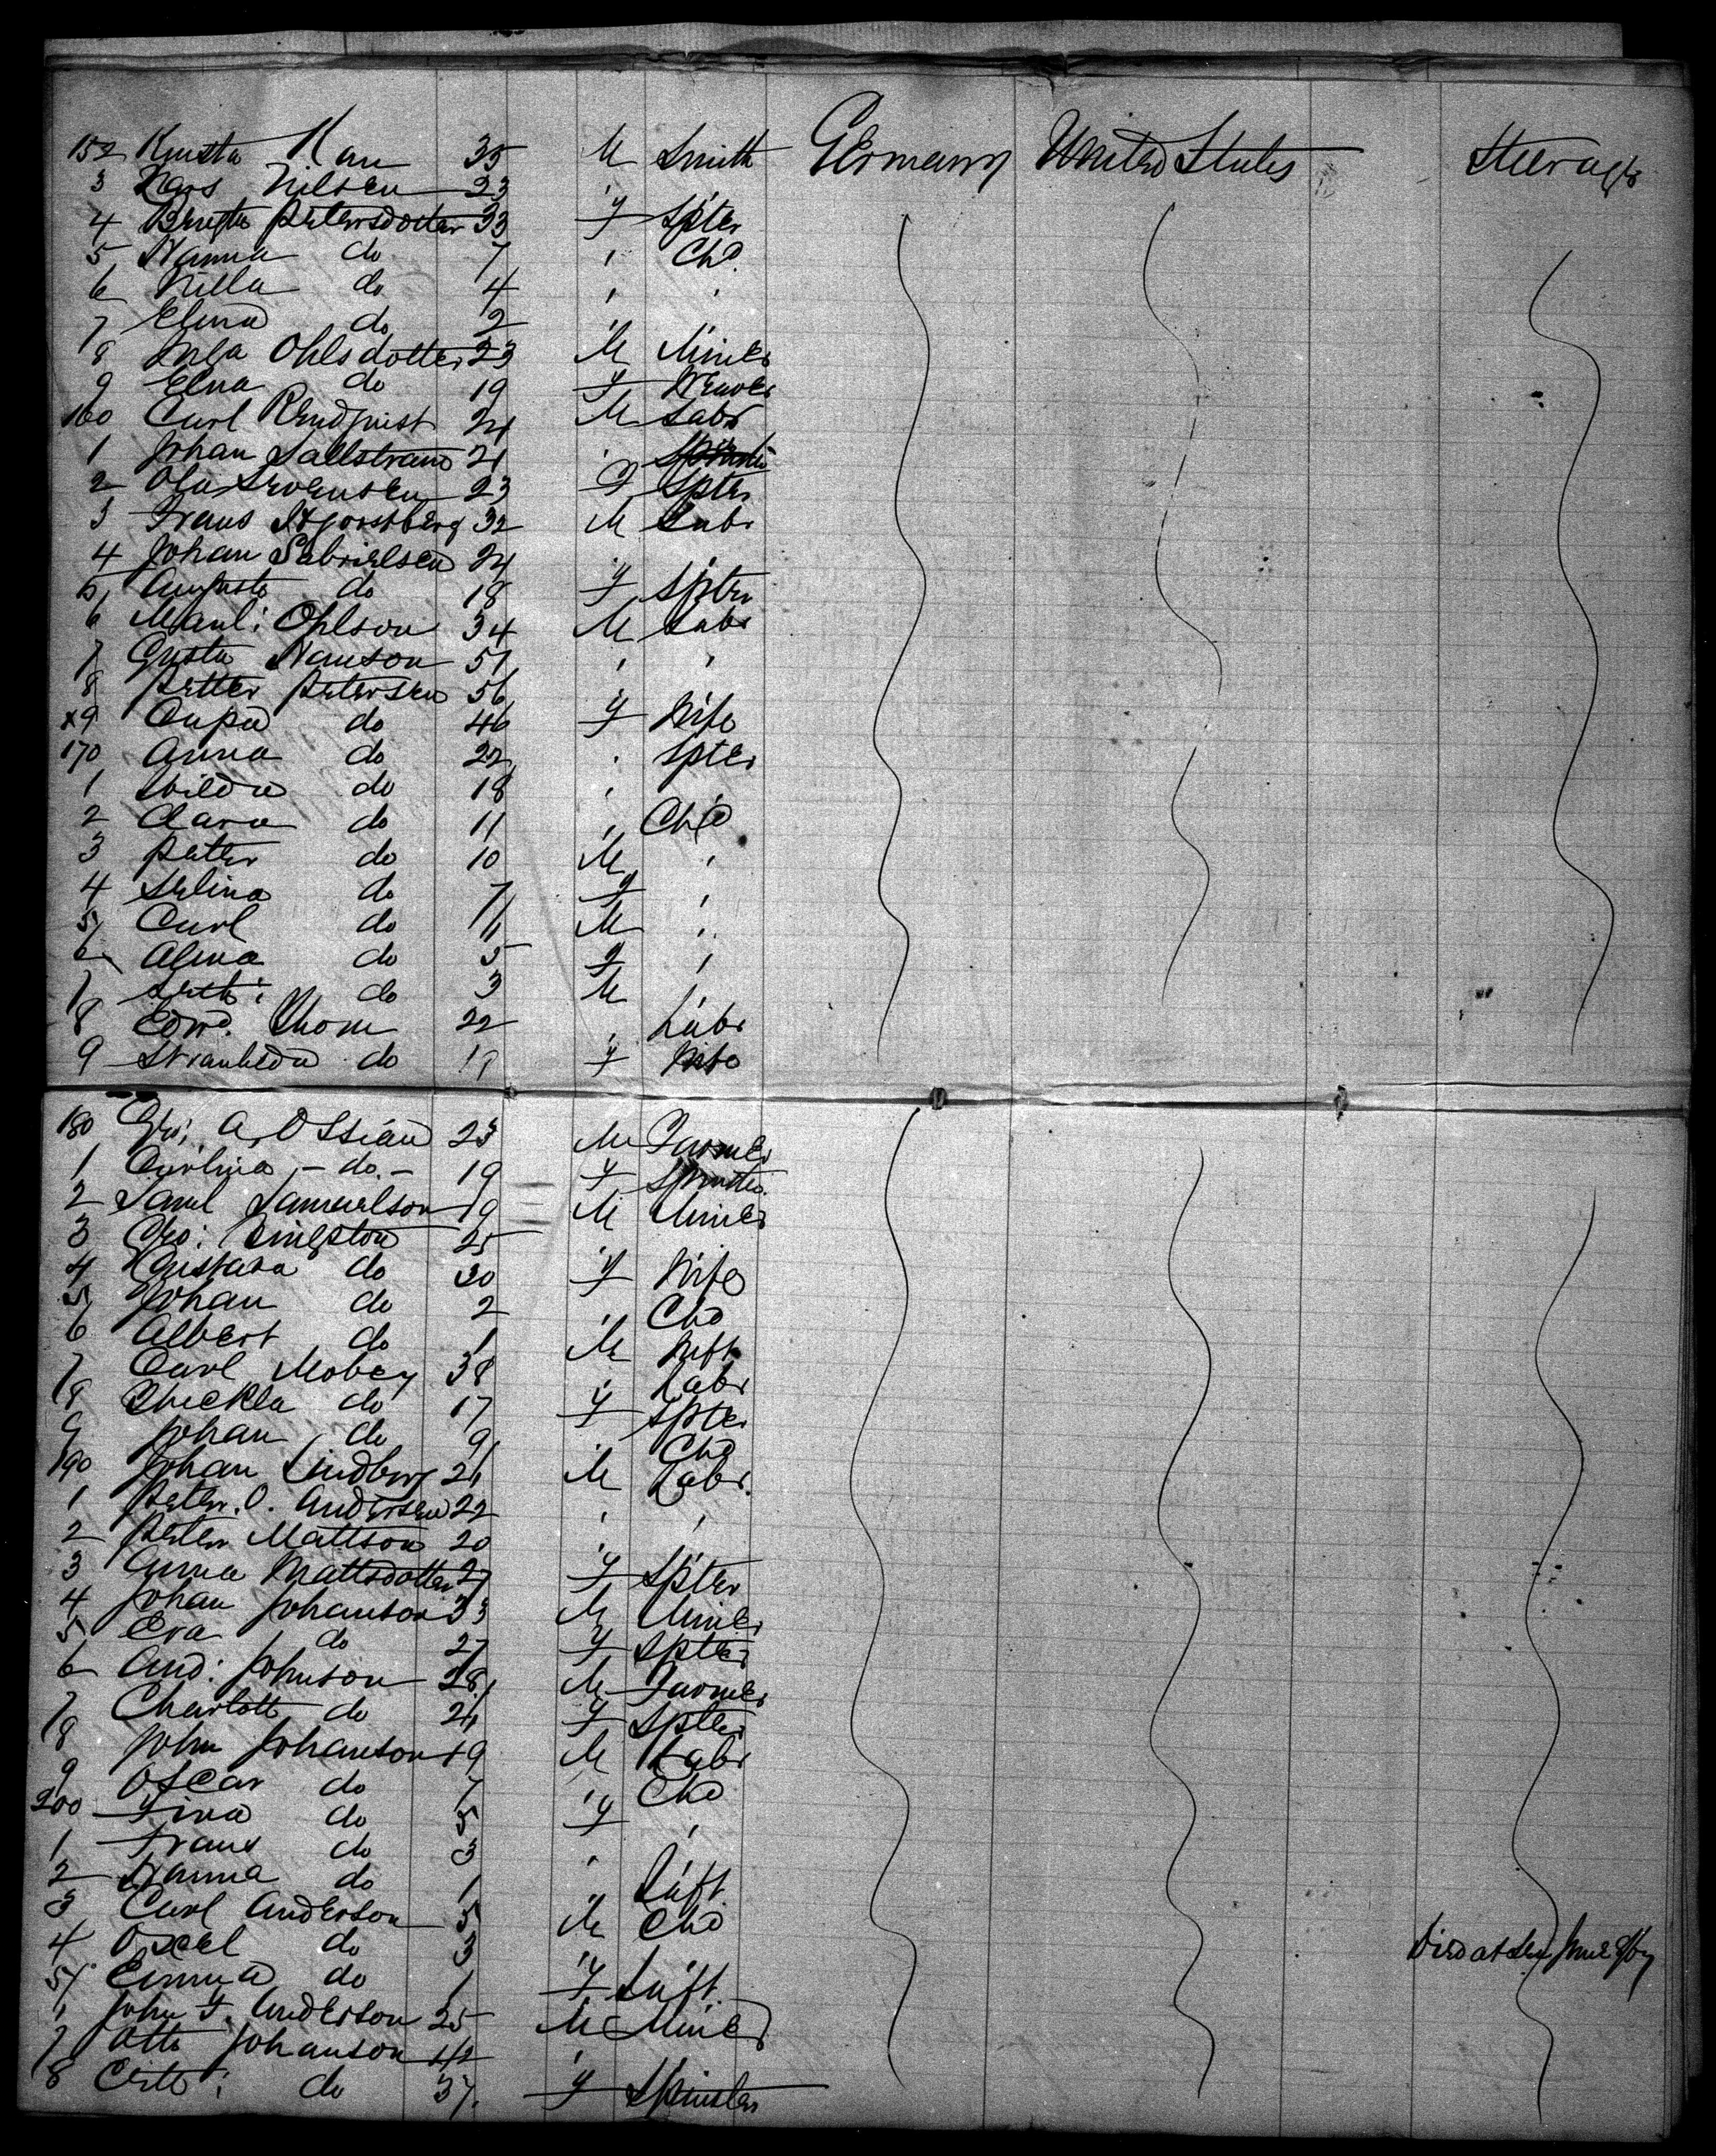 152 Knuta Kan 35 M Smith Germany United States Steerage
3 Nars Nilsen 23 "
4 Bengta Petersdotter 33 F Spter
5 Hanna do 7 " Chd
6 Nilla do 4 " "
7 Elina do 2 " "
8 Inga Ohlsdotter 23 M Miner
9 Elna do 19 F Weaver
160 Carl Rindquist 24 M Labr
1 Johan Sallstrand 21 "
2 Ola Swensen 23 F Spter
3 Frans Hjorstberg 32 M Labr
4 Johan Gabrielsen 24 " "
5 Augusta do 18 F Spter
6 Manl: Ohlson 34 M Labr
7 Gusta Hanson 51 " "
8 Petter Petersen 56 " "
x9 Cupa do 46 F Wife
170 Anna do 22 " Spter
1 Hilda do 18 " "
2 Clara do 11 " Chd
3 Peter do 10 M "
4 Selina do 7 F "
5 Carl do 11 M "
6 Alma do 5 F "
7 do 3 M "
8 Edwd. Thom 22 " Labr
9 do 19 F Wife
180 Geo; A. Ossian 23 M Farmer
1 Carlina - do - 19 F Spinster
2 Saml Samuelson 19 M Miner
3 Geo: Ringston 25 " "
4 Gustava do 30 F Wife
5 Johan do 2 " Chd
6 Albert do 1 M Inft
7 Carl Mobey 38 " Labr
8 Theckla do 17 F Spter
9 Johan do 9 " Chd
190 Johan Lindberg 21 M Labr.
1 Peter. O. Andersen 22 " "
2 Peter Mattson 20 " "
3 Anna Mattsdotter 27 F Spter
4 Johan Johanson 33 M Miner
5 Eva do 27 F Spter
6 And: Johnson 28 M Farmer
7 Charlott do 21 F Spter
8 John Johanson 19 M Labr
9 Oscar do 7 " Chd
200 Fina do 5 F "
1 Frans do 3 " "
2 Hanna do 1 " Inft
3 Carl Anderson 5 M Chd
4 Oxcel do 3 " " Died at Sea June
5 Emma do 1 F Inft
John F. Anderson 25 M Miner
7 Otto Johanson 42 " "
8 do 37. F Spinster